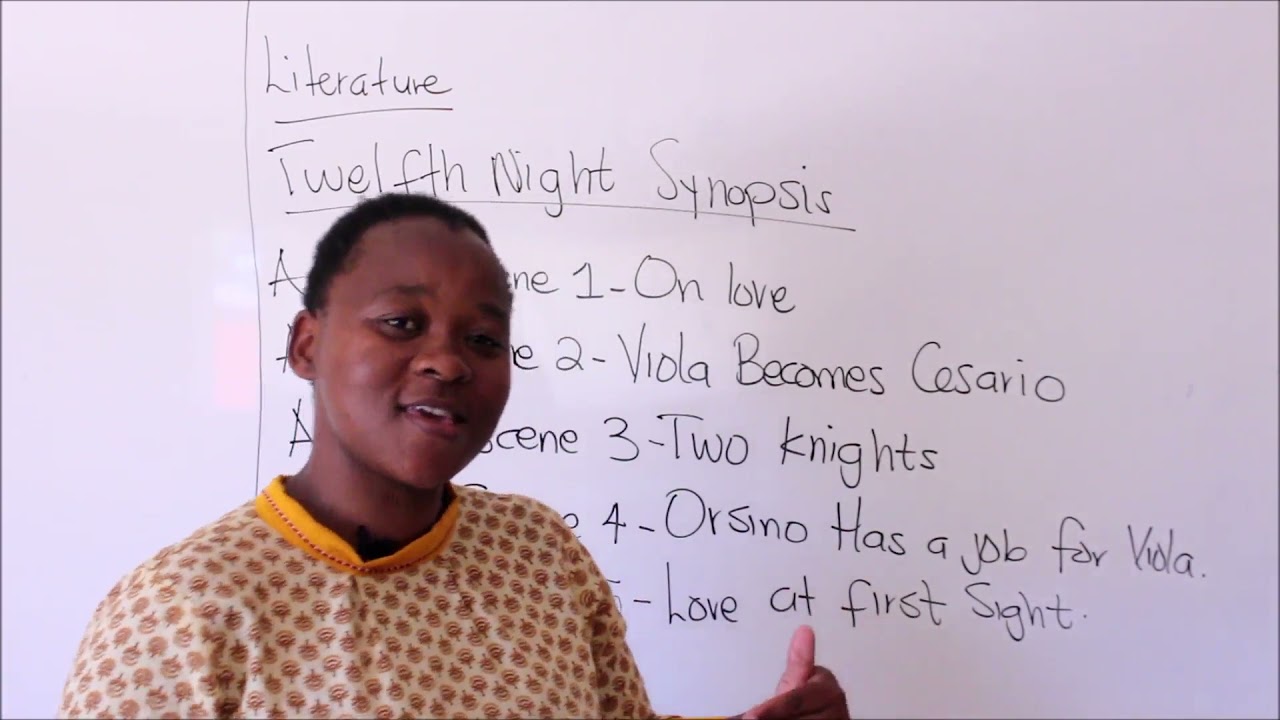 Literature
Twelfth Night Synopsis
1 - On love
2 - Viola Becomes Cesario
scene 3 - Two knights
4 - Orsino Has a job for Viola.
- Love at first Sight.